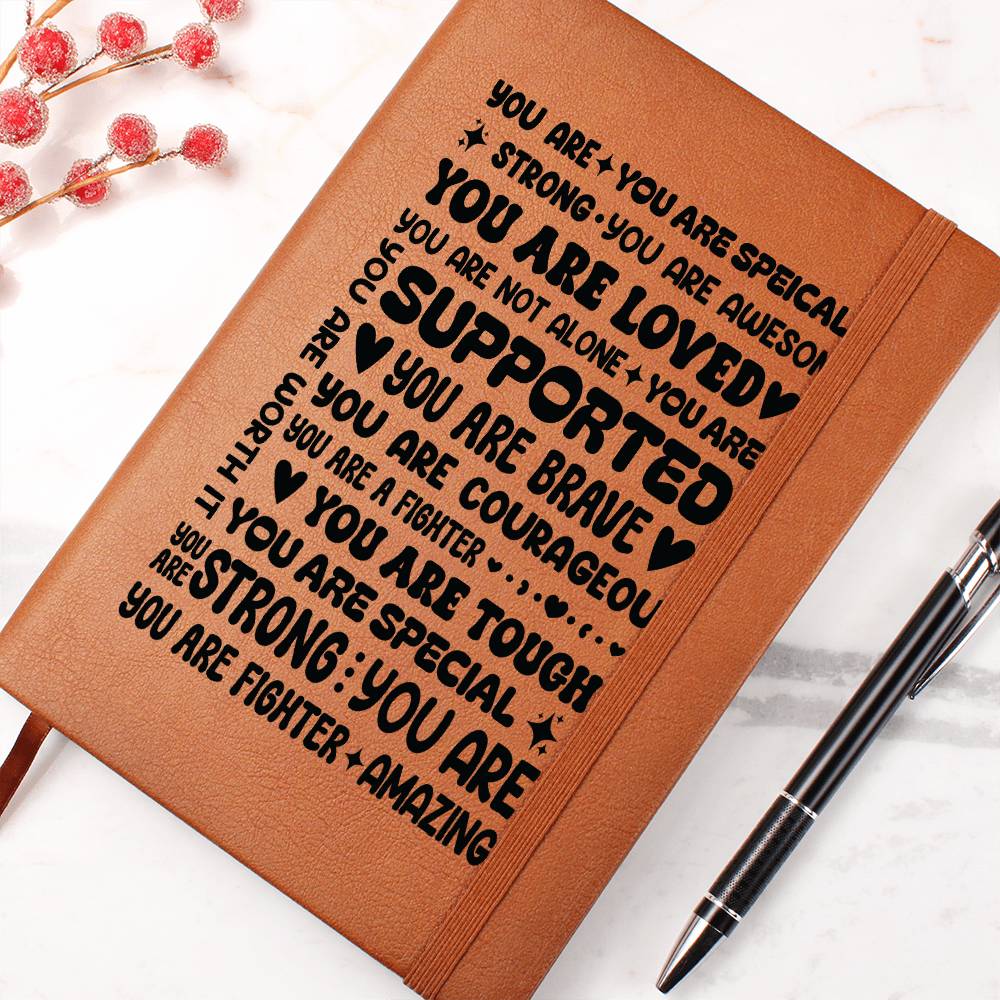 YOU ARE ✦ YOU ARE SPEICAL
STRONG • YOU ARE AWESOM
YOU ARE LOVED
YOU ARE NOT ALONE ✦ YOU ARE
SUPPORTED
YOU ARE WORTH IT
YOU ARE BRAVE
YOU ARE COURAGEOU
YOU ARE A FIGHTER
YOU ARE TOUGH
YOU ARE SPECIAL
YOU ARE STRONG : YOU ARE
YOU ARE FIGHTER ✦ AMAZING